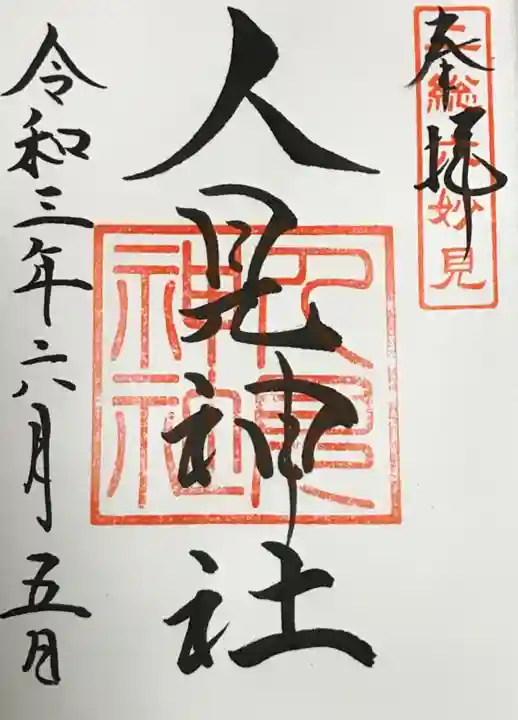 奉拝
総 妙見
人見神社
人見神社
令和三年六月五日